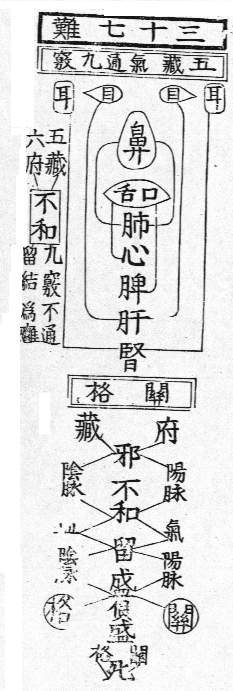 三十七難
五藏氣通九竅
耳 目 目 耳
鼻
口舌
肺
心
脾
肝
腎
五藏六府
不和
九竅不通
留結爲癰
關格
府 藏
邪
陽脉 陰脉
不
和
氣
留
陽脉 陰脉
盛
關 格
盛
關格
死